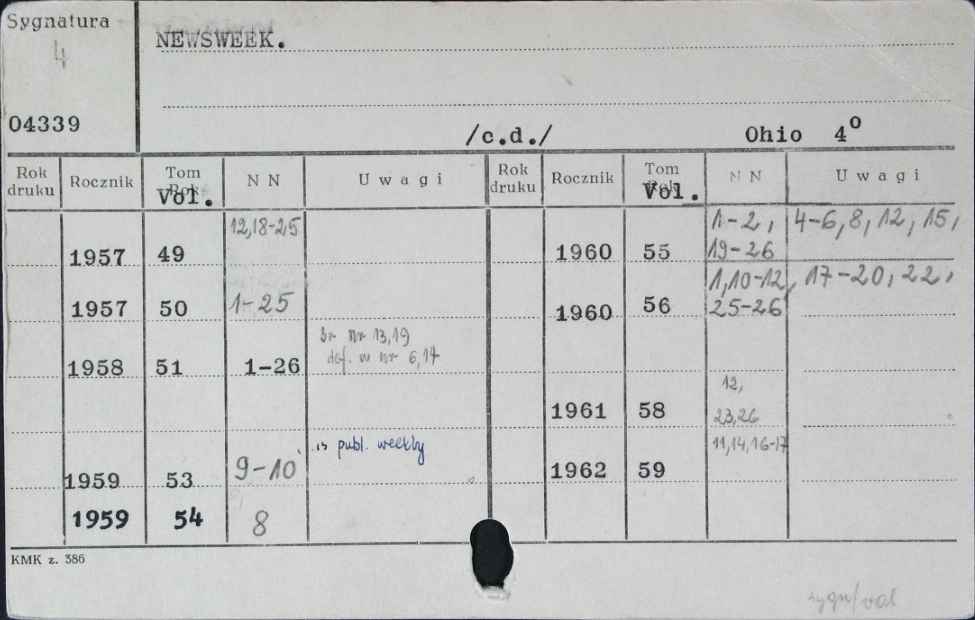 Sygnatura
4
NEWSWEEK.
04339
/c.d./ Ohio 4°
Rok druku Rocznik Tom Rok Vol. N N Uwagi Rok druku Rocznik Tom Rok Vol. N N Uwagi
1957 49 12,18-25 1960 55 1-2, 4-6, 8, 12, 15, 19-26
1957 50 1-25 1960 56 1, 10-12, 17-20, 22, 25-26
1958 51 1-26 br nr 13,19
def. w nr 6,17
1961 58 12, 23,26
is publ. weekly
1959 53 9-10 1962 59 11,14,16-17
1959 54 8
KMK z. 386
sygn/val